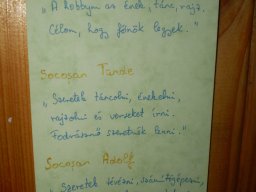 „A hobbym az ének, tánc, rajz.
Célom, hogy főnök legyek."
Socosan Tünde
„Szeretek táncolni, énekelni,
rajzolni és verseket írni.
Fodrásznő szeretnék lenni."
Socosan Adolf
„Szeretek tévézni, számítógépezni,